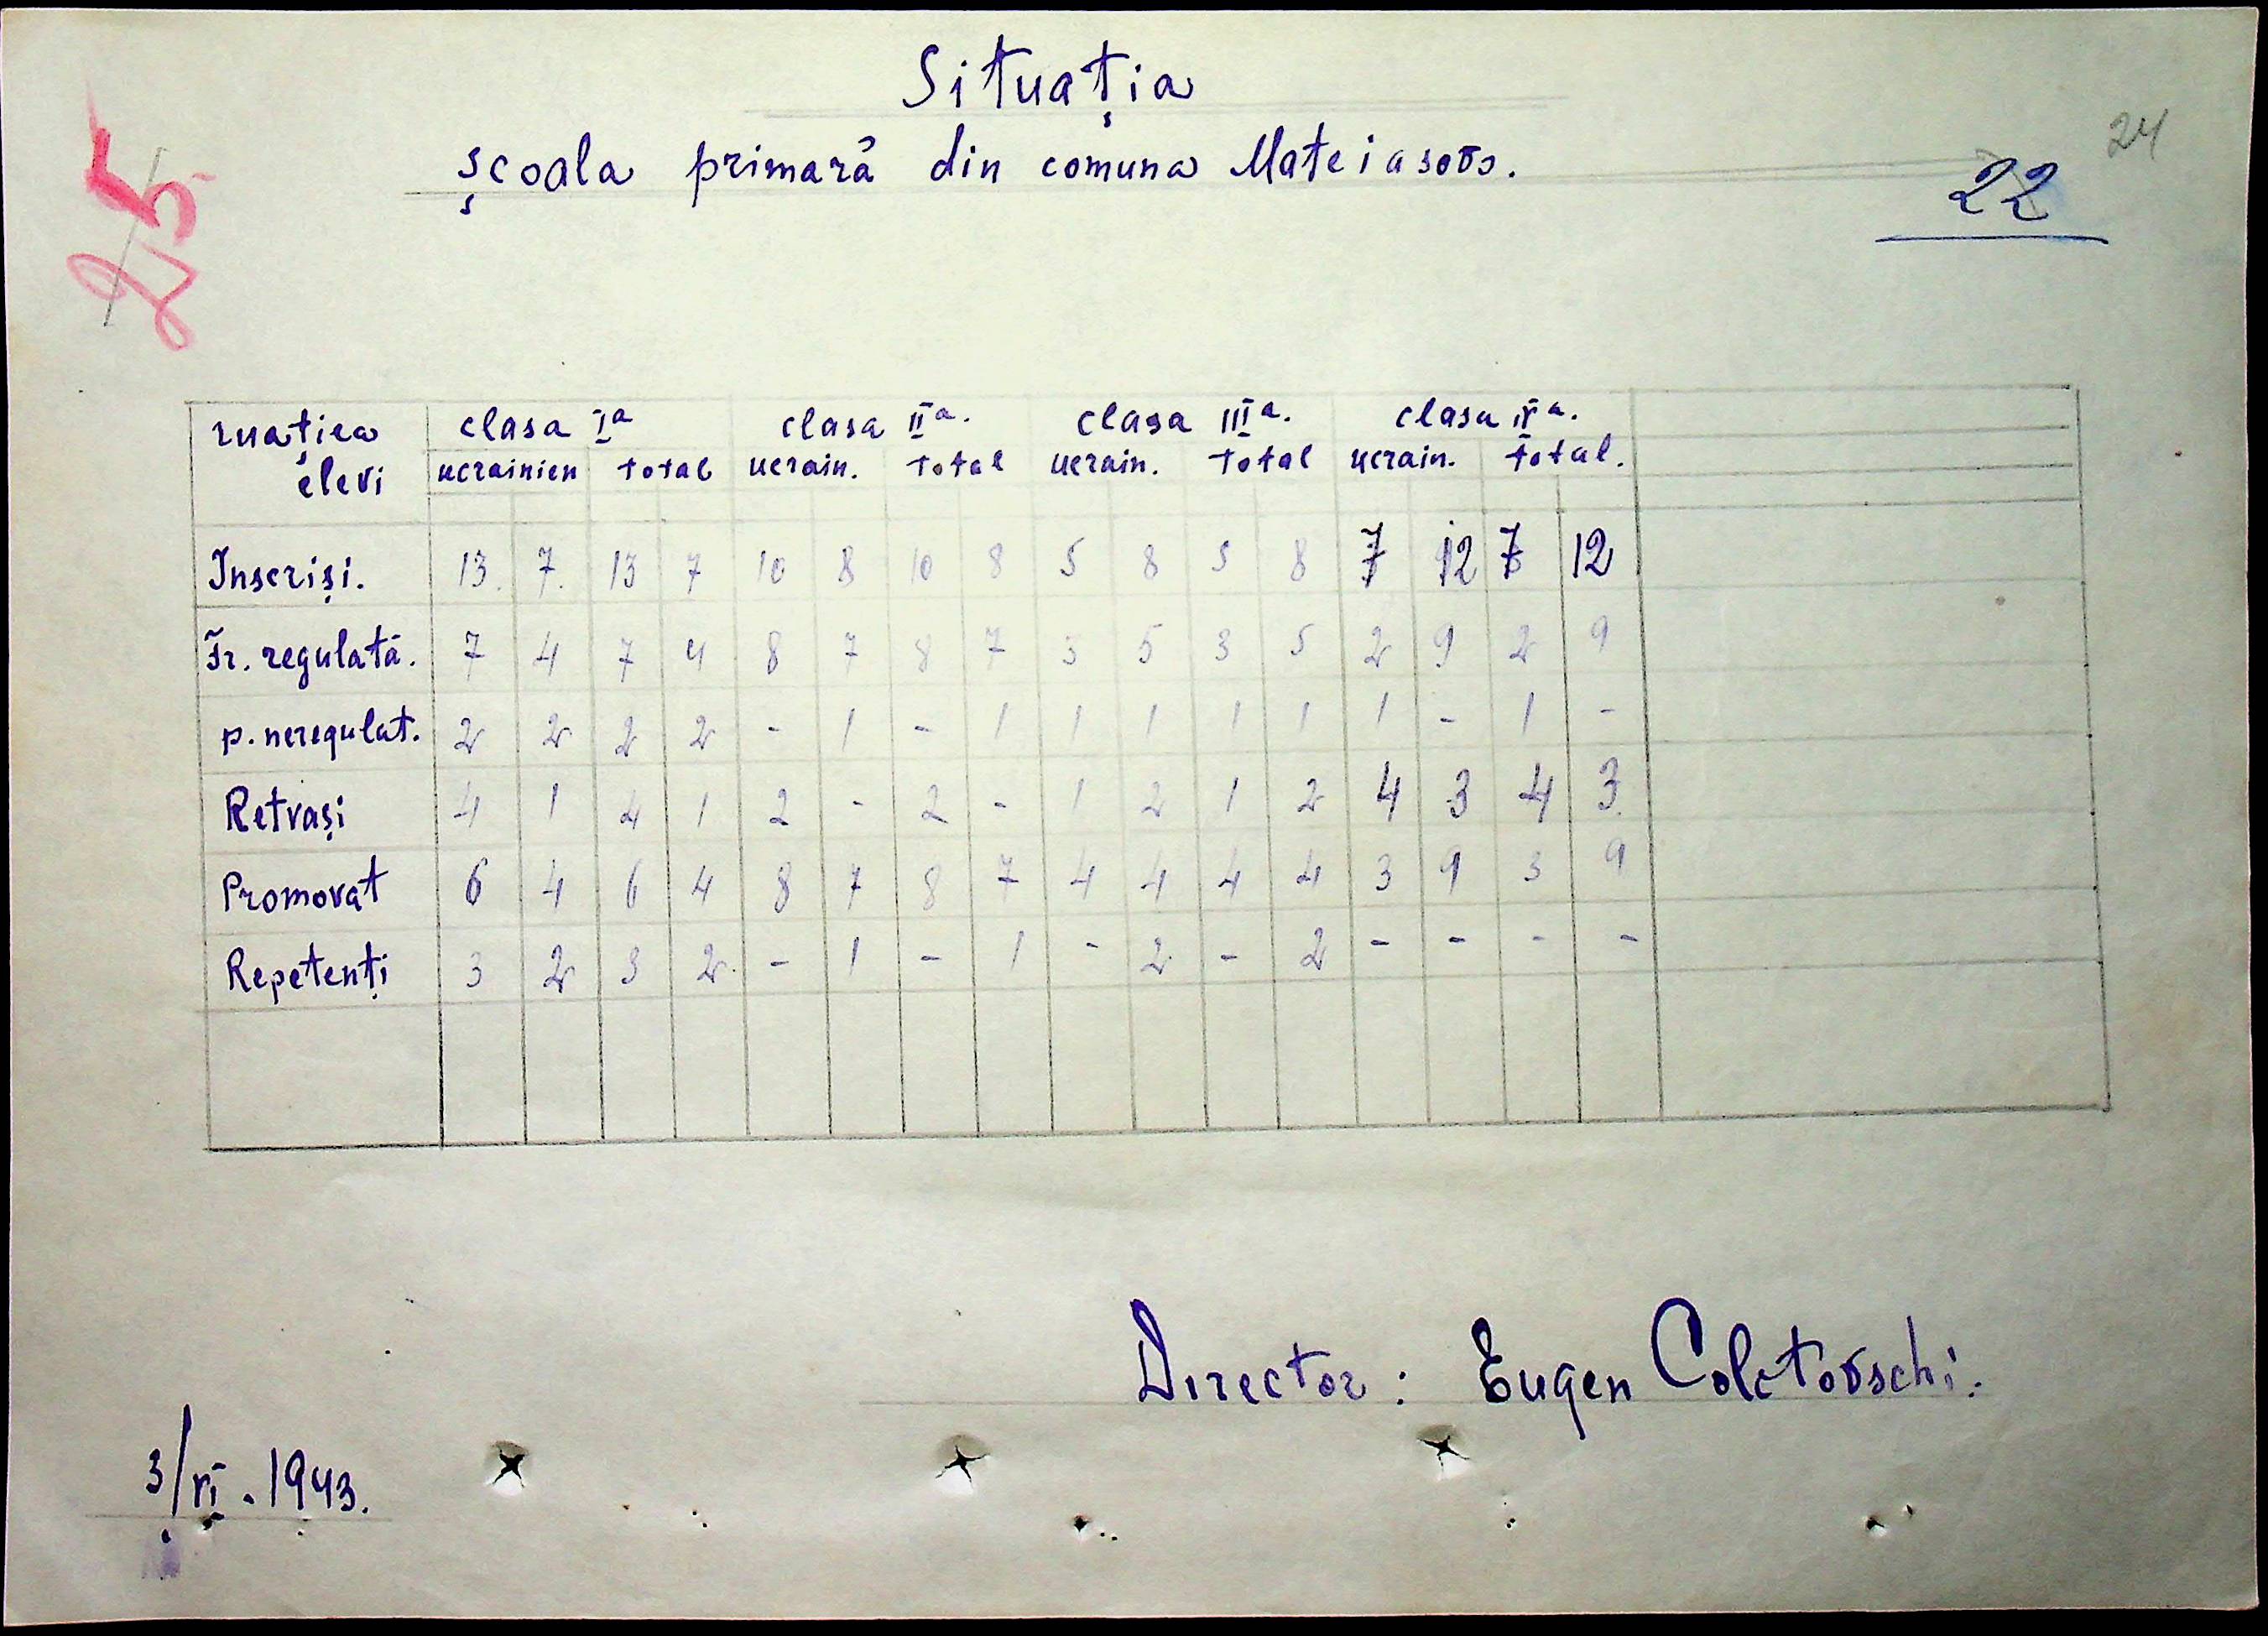 Situația
24
școala primară din comuna Mateiasovo.
22
25
ruația elevi clasa Iª clasa IIª. clasa IIIª. clasa IVª.
ucrainien total ucrain. total ucrain. total ucrain. total.
Inscriși. 13. 7. 13 7 10 8 10 8 5 8 5 8 7 12 7 12
Fr. regulată. 7 4 7 4 8 7 8 7 3 5 3 5 2 9 2 9
p. neregulat. 2 2 2 2 - 1 - 1 1 1 1 1 1 - 1 -
Retrași 4 1 4 1 2 - 2 - 1 2 1 2 4 3 4 3.
Promovat 6 4 6 4 8 7 8 7 4 4 4 4 3 9 3 9
Repetenți 3 2 3 2. - 1 - 1 - 2 - 2 - - - -
Director: Eugen Coletovschi.
3/VI. 1943.